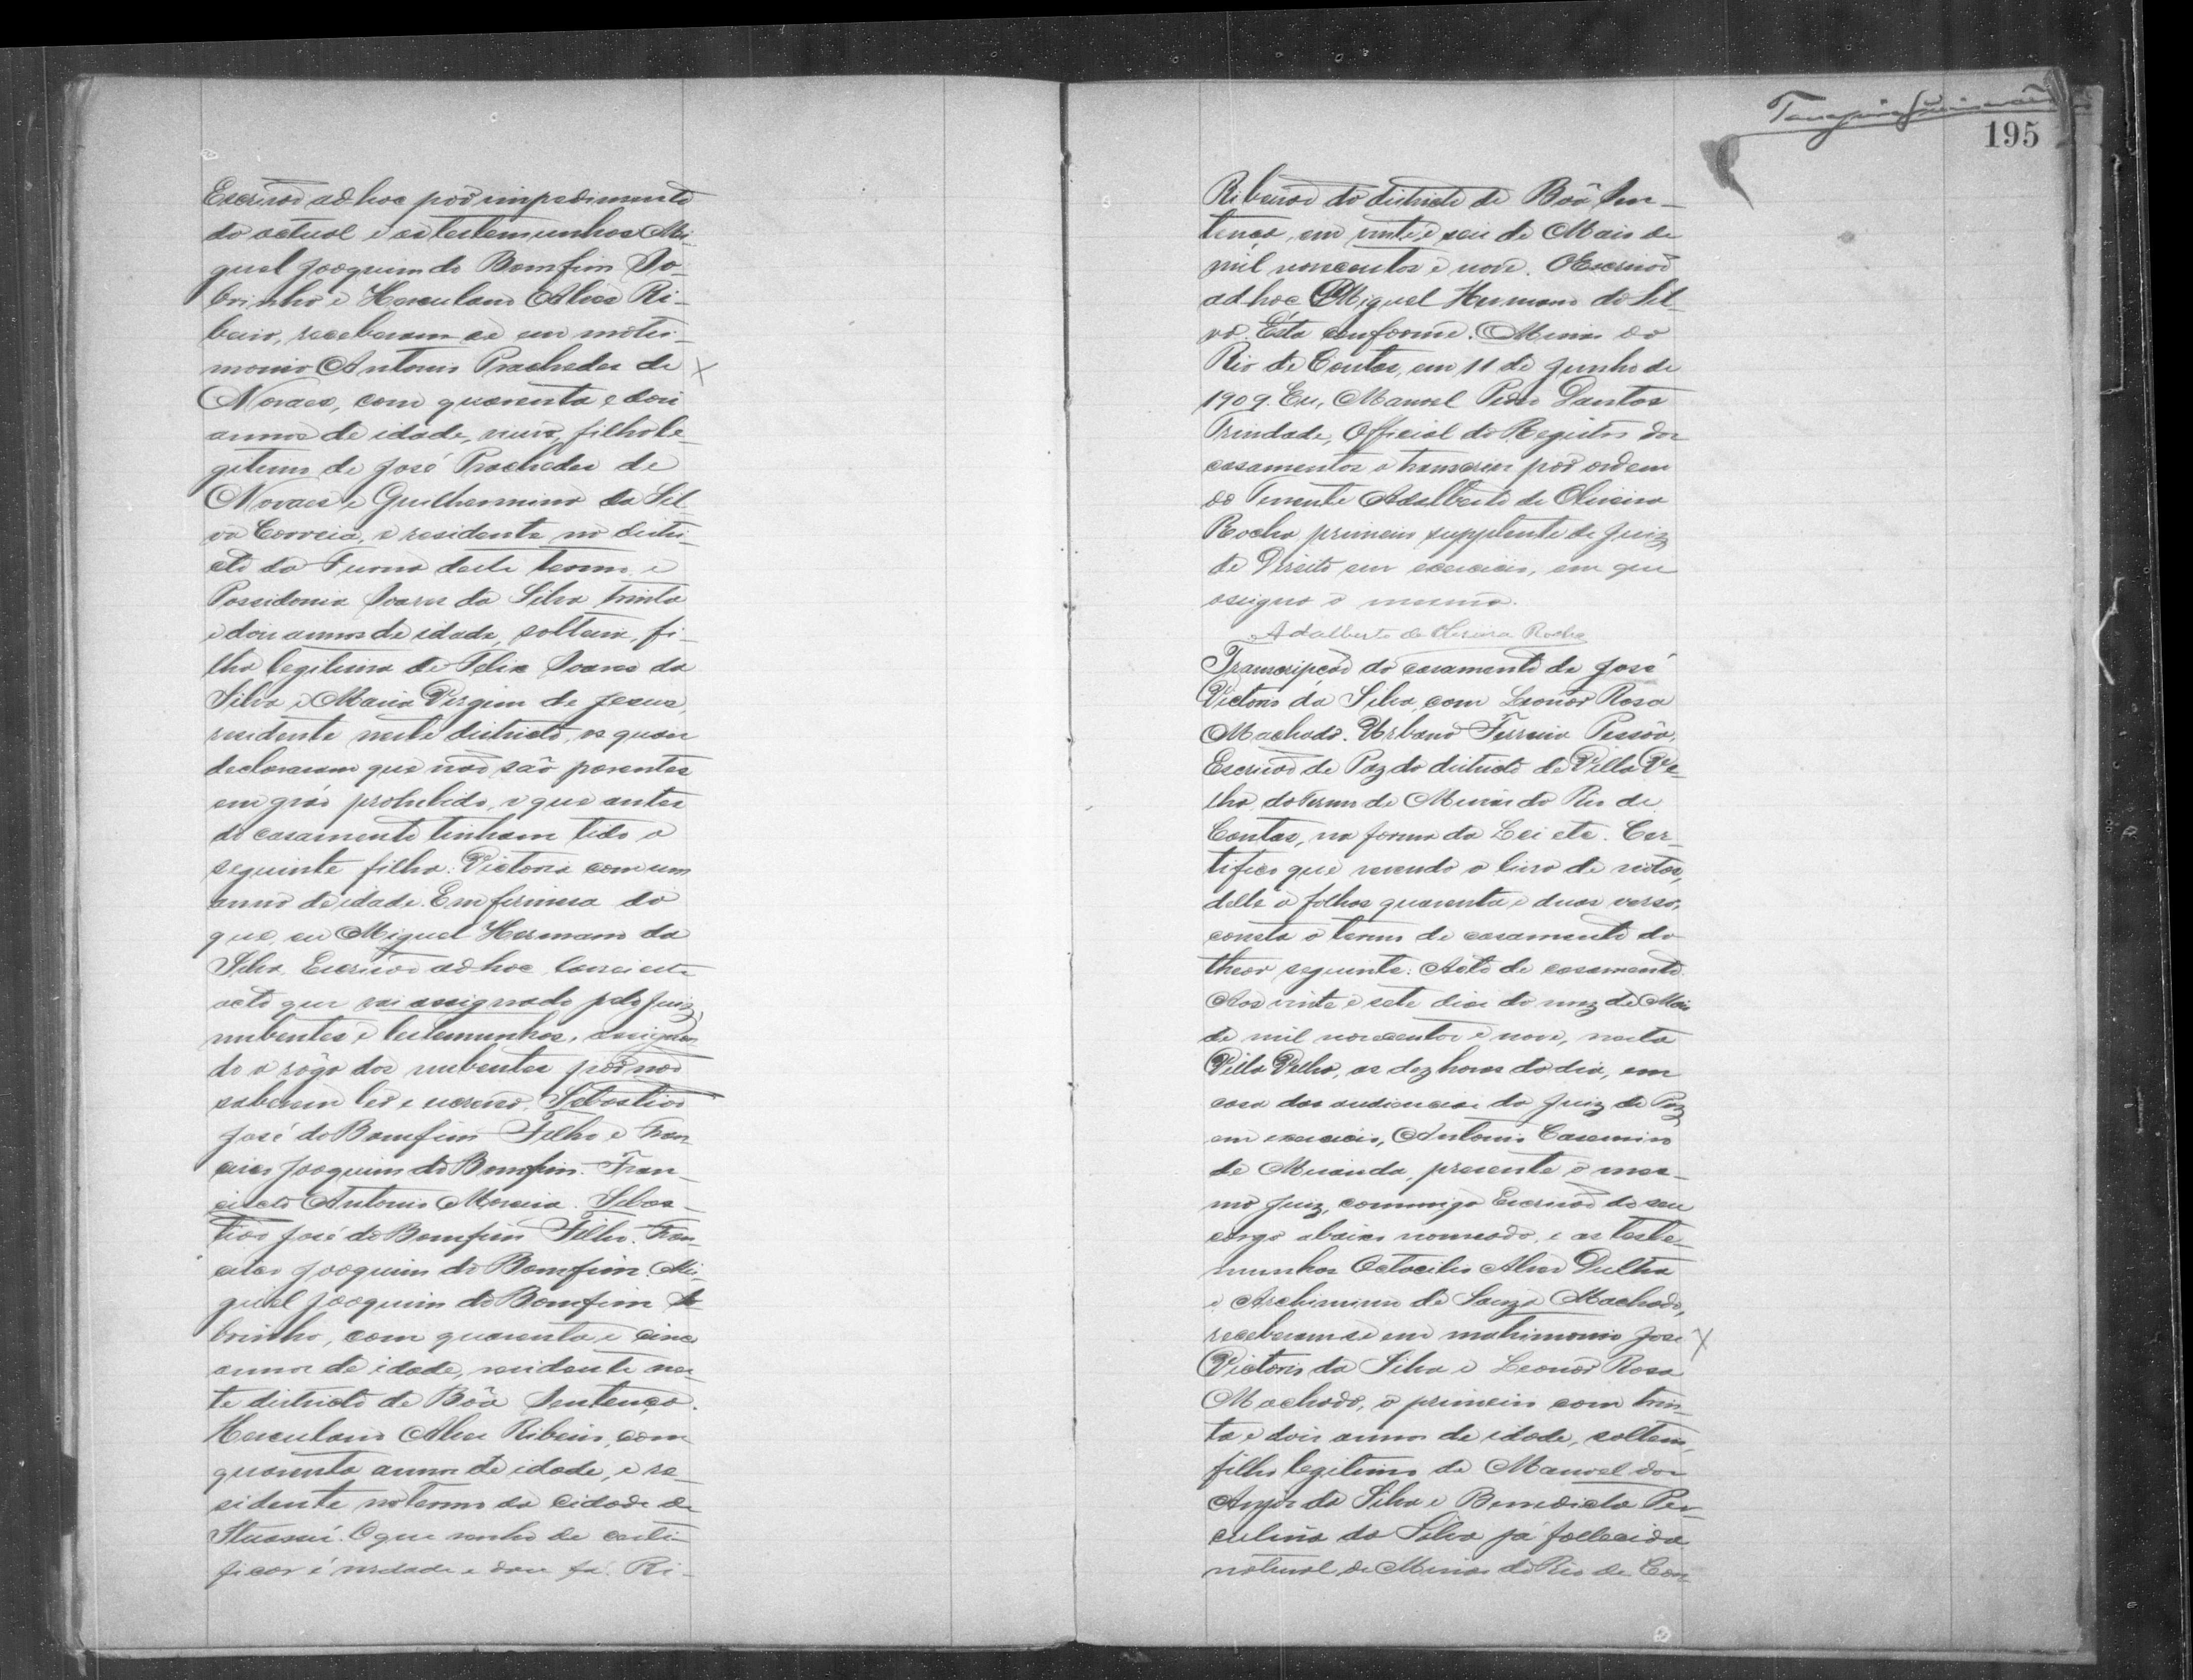 Escrivão ad hoc por impedimento
do actual e as testemunhas Mi-
guel Joaquim do Bomfim So-
brinho e Herculano Alves Ri-
beiro, receberam-se em matri-
monio Antonio Prachedes de X
Novaes, com quarenta e dois
annos de idade, filho le-
gitimo de José Prachedes de
Novaes e Guilhermina da Sil-
va Correia, e residente no distri-
cto da Furna deste termo e
Possidonia Soares da Silva trinta
e dois annos de idade, solteira, fi-
lha legitima de Felix Soares da
Silva e Maria Virgem de Jesus,
residente neste districto, os quaes
declararam que não são parentes
em gráo prohibido, e que antes
do casamento tinham tido a
seguinte filha: Victoria com um
anno de idade. Em firmesa do
que, eu Miguel Hermano da
Silva, Escrivão ad hoc, lavrei este
acto que vai assignado pelo Juiz,
nubentes e testemunhas, assignan-
do a rôgo dos nubentes por não
saberem ler e escrever, Sebastião
José do Bomfim Filho e Fran-
cisco Joaquim do Bomfim. Fran-
cisco Antonio Moreira. Sebas-
tião José do Bomfim Filho. Fran-
cisco Joaquim do Bomfim. Mi-
guel Joaquim do Bomfim So-
brinho, com quarenta e cinco
annos de idade, residente nes-
te districto de Bôa Sentença.
Herculano Alves Ribeiro, com
quarenta annos de idade, e re-
sidente no termo da cidade de
Ituassú. O que venho de certi-
ficar é verdade e dou fé. Ri-
195
Ribeirão do districto de Bôa Sen-
tença, em vinte e seis de Maio de
mil novecentos e nove. O Escrivão
ad hoc Miguel Hermano da Sil-
va. Está conforme. Minas do
Rio de Contas, em 11 de Junho de
1909. Eu, Manoel Pedro Dantas
Trindade, Official do Registro dos
casamentos o transcrevi por ordem
do Tenente Adalberto de Oliveira
Rocha primeiro supplente de Juiz
de Direito em exercicio, em que
assigna o mesmo.
Adalberto de Oliveira Rocha
Transcripção do casamento de José
Victorio da Silva, com Leonôr Rosa
Machado. Urbano Ferreira Pessôa,
Escrivão de Paz do districto de Villa Ve-
lha, do Termo de Minas do Rio de
Contas, na forma da Lei etc. Cer-
tifico que revendo o livro de notas,
delle a folhas quarenta e duas verso,
consta o termo de casamento do
theor seguinte: Acto de casamento.
Aos vinte e sete dias do mez de Maio
de mil novecentos e nove, nesta
Villa Velha, as dez horas do dia, em
casa das audiencias do Juiz de Paz
em exercicio, Antonio Casemiro
de Miranda, presente o mes-
mo Juiz, commigo Escrivão do seu
cargo abaixo nomeado, e as teste-
munhas Octacilio Alves Dultra
e Archimimo de Souza Machado,
receberam-se em matrimonio José X
Victorio da Silva e Leonôr Rosa
Machado, o primeiro com trin-
ta e dois annos de idade, solteiro,
filho legitimo de Manoel dos
Anjos da Silva e Benedicta Per-
culina da Silva já fallecida
natural de Minas do Rio de Con-